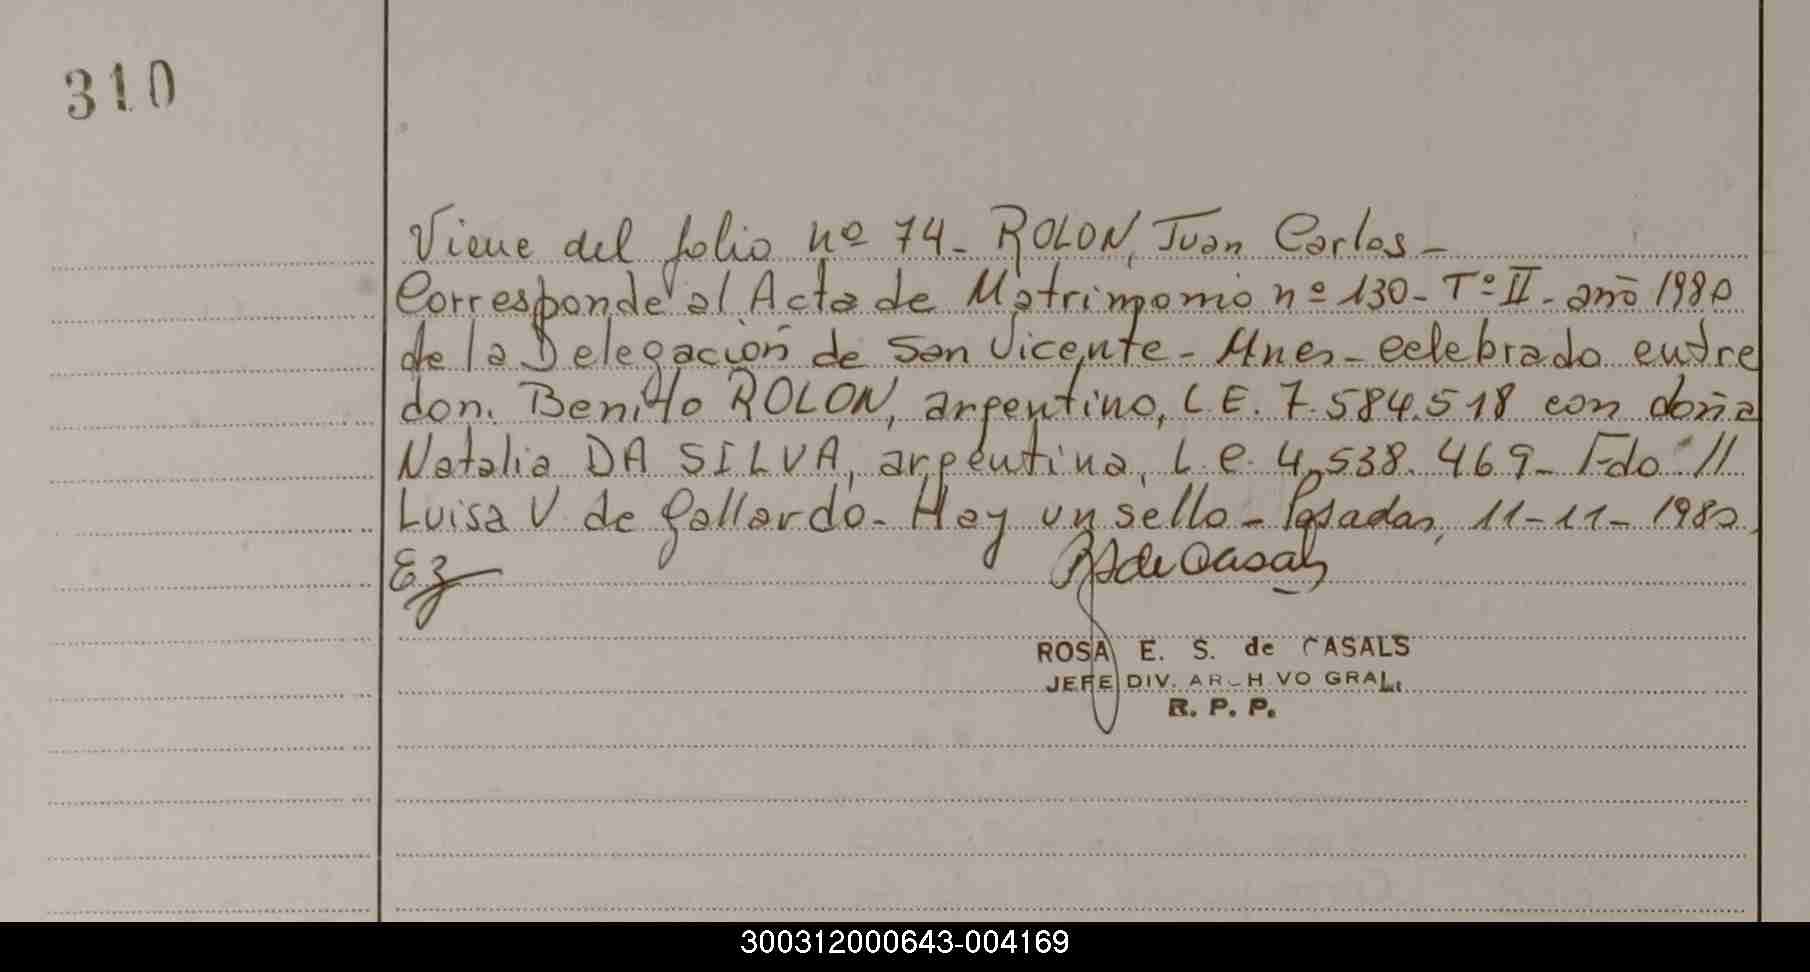 310
Viene del folio nº 74- ROLON, Juan Carlos-
Corresponde al Acta de Matrimonio nº 130- Tº II- año 1980
de la Delegación de San Vicente- Mnes- celebrado entre
don. Benito ROLON, argentino, L.E. 7.584.518 con doña
Natalia DA SILVA, argentina, L.e. 4.538.469- Fdo //
Luisa V. de Gallardo- Hay un sello- Posadas, 11-11-1980.
Ez
RS de Casals
ROSA E. S. de CASALS
JEFE DIV. ARCHIVO GRAL.
R. P. P.
300312000643-004169